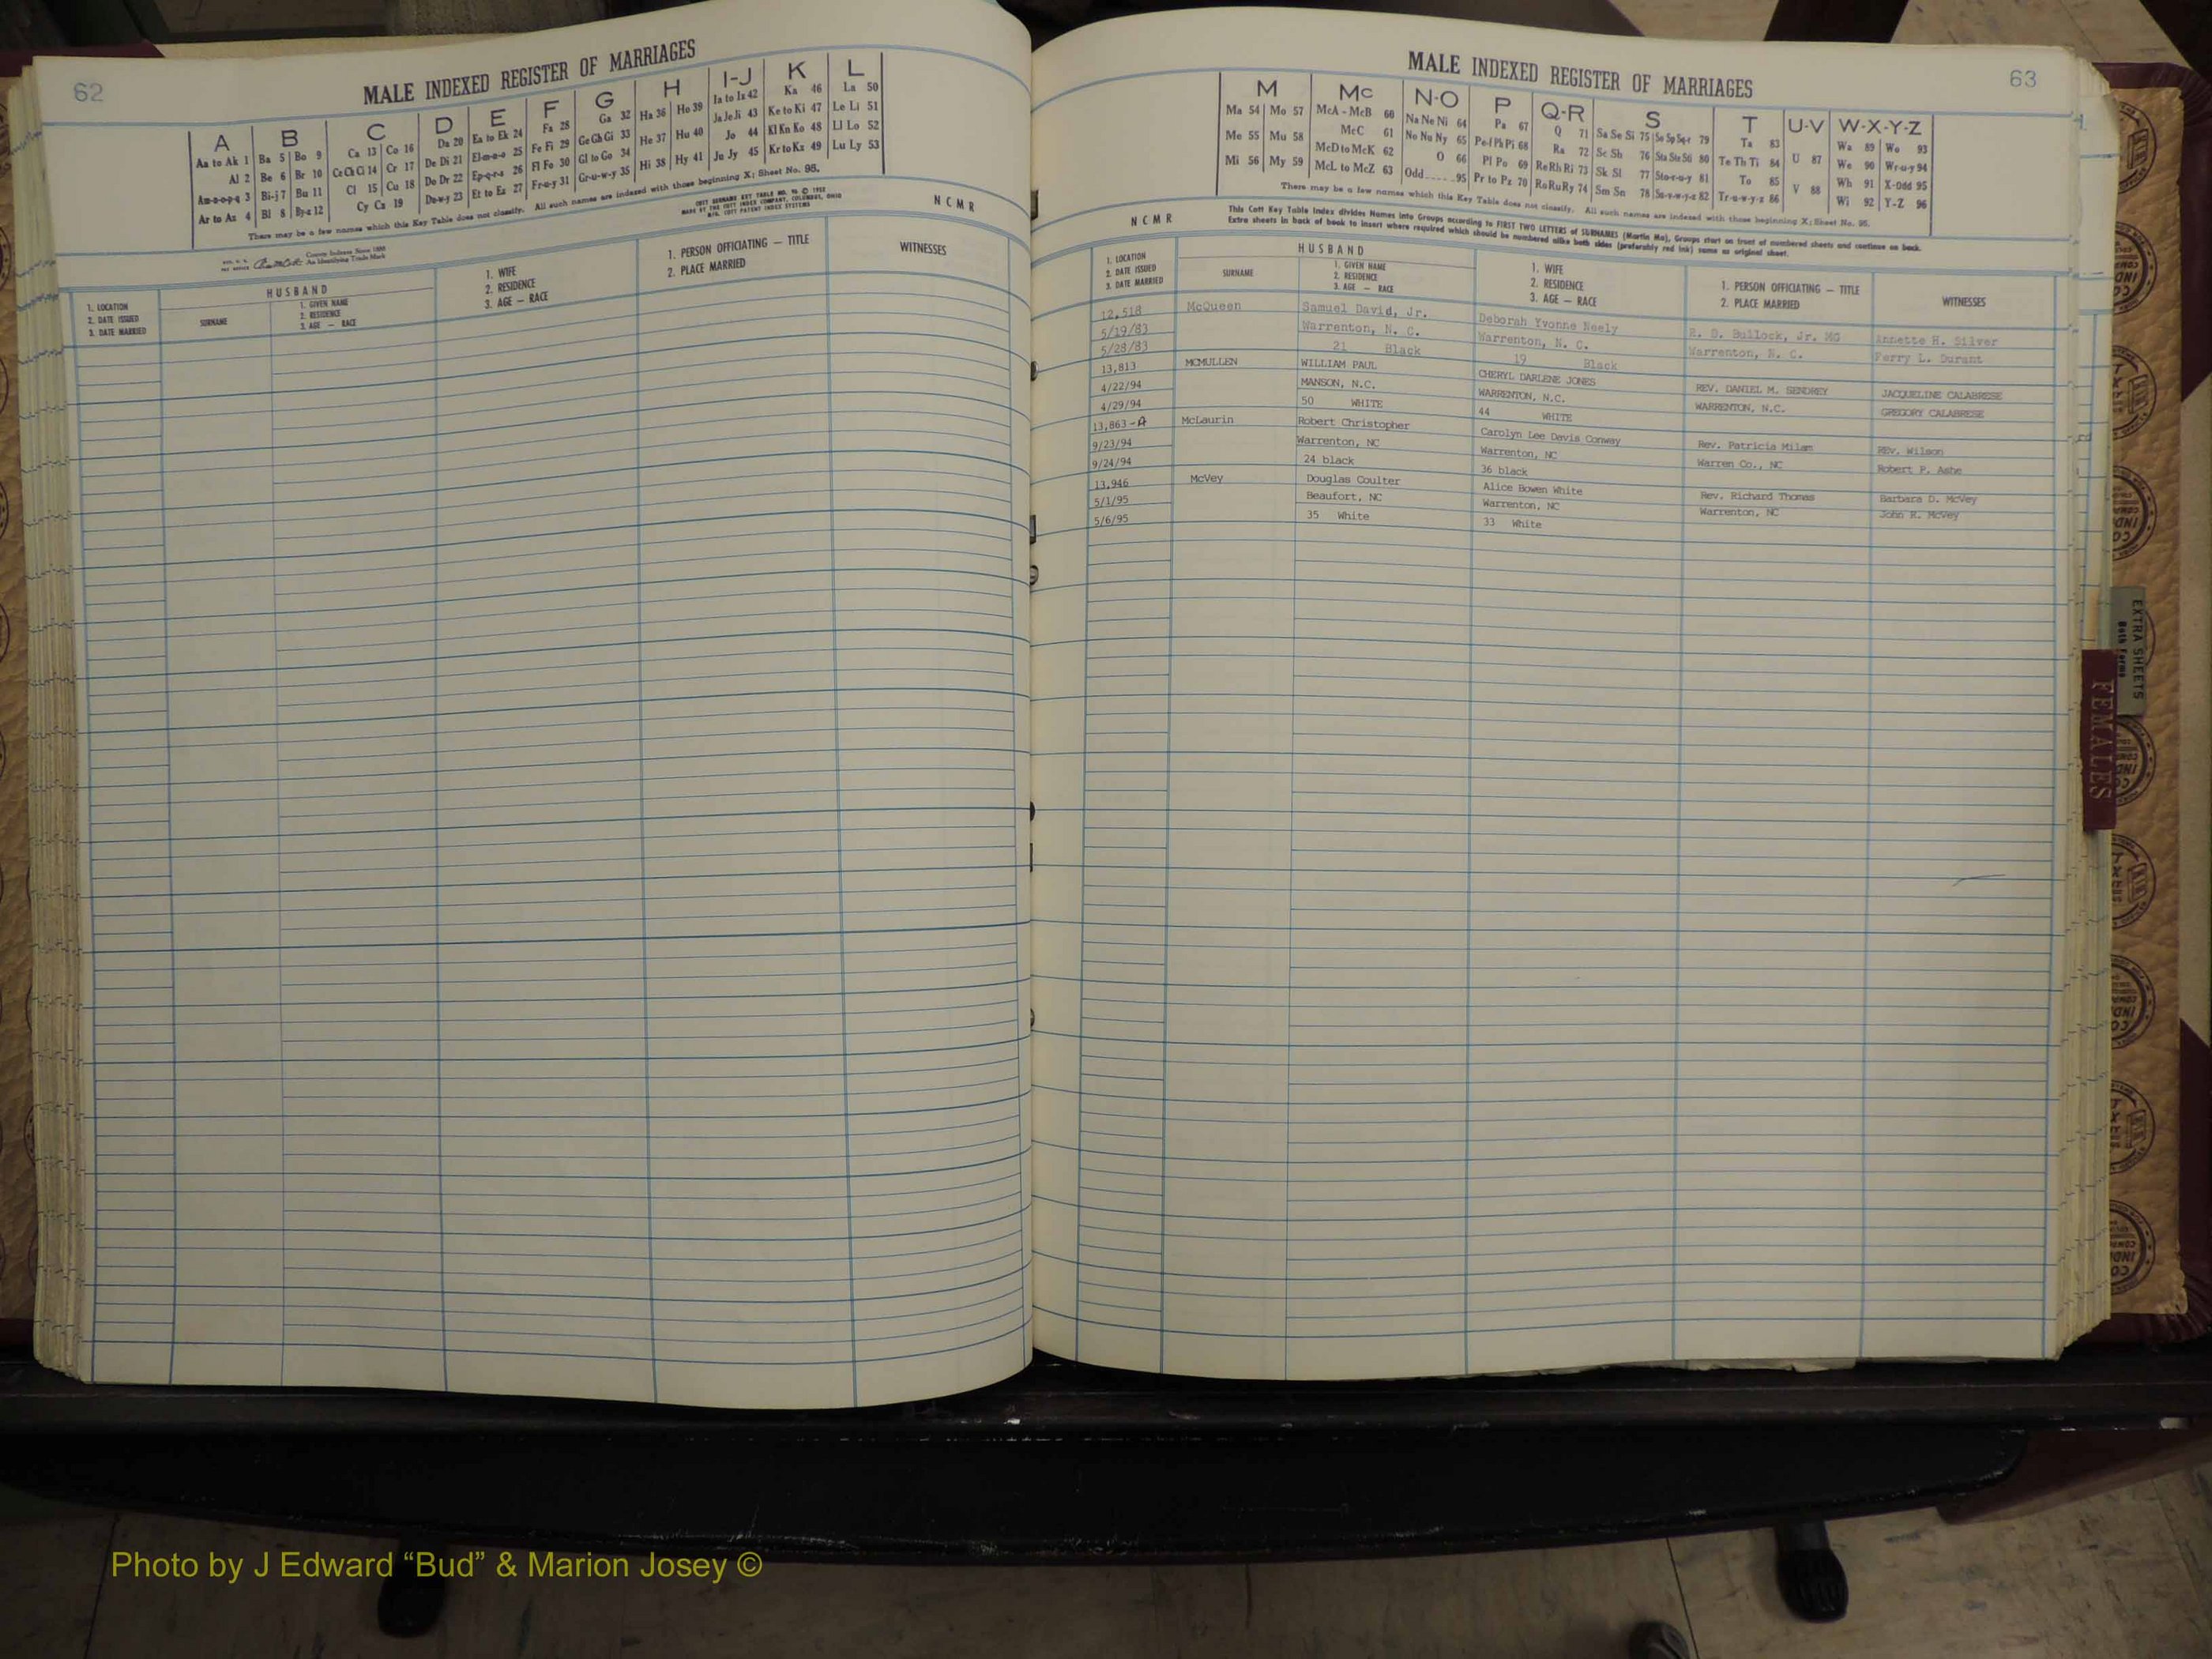 62
MALE INDEXED REGISTER OF MARRIAGES
A B C D E F G H I-J K L
Aa to Ak 1 Ba 5 Bo 9 Ca 13 Co 16 Da 20 Ea to Ek 24 Fa 28 Ga 32 Ha 36 Ho 39 Ia to Iz 42 Ka 46 La 50
Al 2 Be 6 Br 10 Ce Ch Ci 14 Cr 17 De Di 21 El-m-n-o 25 Fe Fi 29 Ge Gh Gi 33 He 37 Hu 40 Ja Je Ji 43 Ke to Ki 47 Le Li 51
Am-n-o-p-q 3 Bi-j 7 Bu 11 Cl 15 Cu 18 Do Dr 22 Ep-q-r-s 26 Fl Fo 30 Gl to Go 34 Hi 38 Hy 41 Jo 44 Kl Kn Ko 48 Ll Lo 52
Ar to Az 4 Bl 8 By-z 12 Cy Cz 19 Du-w-y 23 Et to Ez 27 Fr-u-y 31 Gr-u-w-y 35 Ju Jy 45 Kr to Kz 49 Lu Ly 53
There may be a few names which this Key Table does not classify. All such names are indexed with those beginning X; Sheet No. 95.
County Indexes Since 1888
An Identifying Trade Mark
COTT SURNAME KEY TABLE NO. 96 ©
MADE BY THE COTT INDEX COMPANY, COLUMBUS, OHIO
N C M R
1. LOCATION
2. DATE ISSUED
3. DATE MARRIED
HUSBAND
SURNAME
1. GIVEN NAME
2. RESIDENCE
3. AGE — RACE
1. WIFE
2. RESIDENCE
3. AGE — RACE
1. PERSON OFFICIATING — TITLE
2. PLACE MARRIED
WITNESSES
63
MALE INDEXED REGISTER OF MARRIAGES
M Mc N-O P Q-R S T U-V W-X-Y-Z
Ma 54 Mo 57 McA - McB 60 Na Ne Ni 64 Pa 67 Q 71 Sa Se Si 75 So Sp Sq-r 79 Ta 83 Wa 89 Wo 93
Me 55 Mu 58 McC 61 No Nu Ny 65 Pe-f Ph Pi 68 Ra 72 Sc Sh 76 Sta Ste Sti 80 Te Th Ti 84 U 87 We 90 Wr-u-y 94
Mi 56 My 59 McD to McK 62 O 66 Pl Po 69 Re Rh Ri 73 Sk Sl 77 Sto-r-u-y 81 To 85 V 88 Wh 91 X-Odd 95
McL to McZ 63 Odd 95 Pr to Pz 70 Ro Ru Ry 74 Sm Sn 78 Su-v-w-y-z 82 Tr-u-w-y-z 86 Wi 92 Y-Z 96
There may be a few names which this Key Table does not classify. All such names are indexed with those beginning X; Sheet No. 95.
N C M R
This Cott Key Table Index divides Names into Groups according to FIRST TWO LETTERS of SURNAMES (Martin Ma), Groups start on front of numbered sheets and continue on back.
Extra sheets in back of book to insert where required which should be numbered alike both sides (preferably red ink) same as original sheet.
1. LOCATION
2. DATE ISSUED
3. DATE MARRIED
HUSBAND
SURNAME
1. GIVEN NAME
2. RESIDENCE
3. AGE — RACE
1. WIFE
2. RESIDENCE
3. AGE — RACE
1. PERSON OFFICIATING — TITLE
2. PLACE MARRIED
WITNESSES
12,518 McQueen Samuel David, Jr. Deborah Yvonne Neely R. D. Bullock, Jr. MG Annette H. Silver
5/19/83 Warrenton, N. C. Warrenton, N. C. Warrenton, N. C. Perry L. Durant
5/28/83 21 Black 19 Black
13,813 MCMULLEN WILLIAM PAUL CHERYL DARLENE JONES REV. DANIEL M. SENDREY JACQUELINE CALABRESE
4/22/94 MANSON, N.C. WARRENTON, N.C. WARRENTON, N.C. GREGORY CALABRESE
4/29/94 50 WHITE 44 WHITE
13,863-A McLaurin Robert Christopher Carolyn Lee Davis Conway Rev. Patricia Milam REv. Wilson
9/23/94 Warrenton, NC Warrenton, NC Warren Co., NC Robert P. Ashe
9/24/94 24 black 36 black
13,946 McVey Douglas Coulter Alice Bowen White Rev. Richard Thomas Barbara D. McVey
5/1/95 Beaufort, NC Warrenton, NC Warrenton, NC John R. McVey
5/6/95 35 White 33 White
EXTRA SHEETS
Both Forms
FEMALES
Photo by J Edward “Bud” & Marion Josey ©